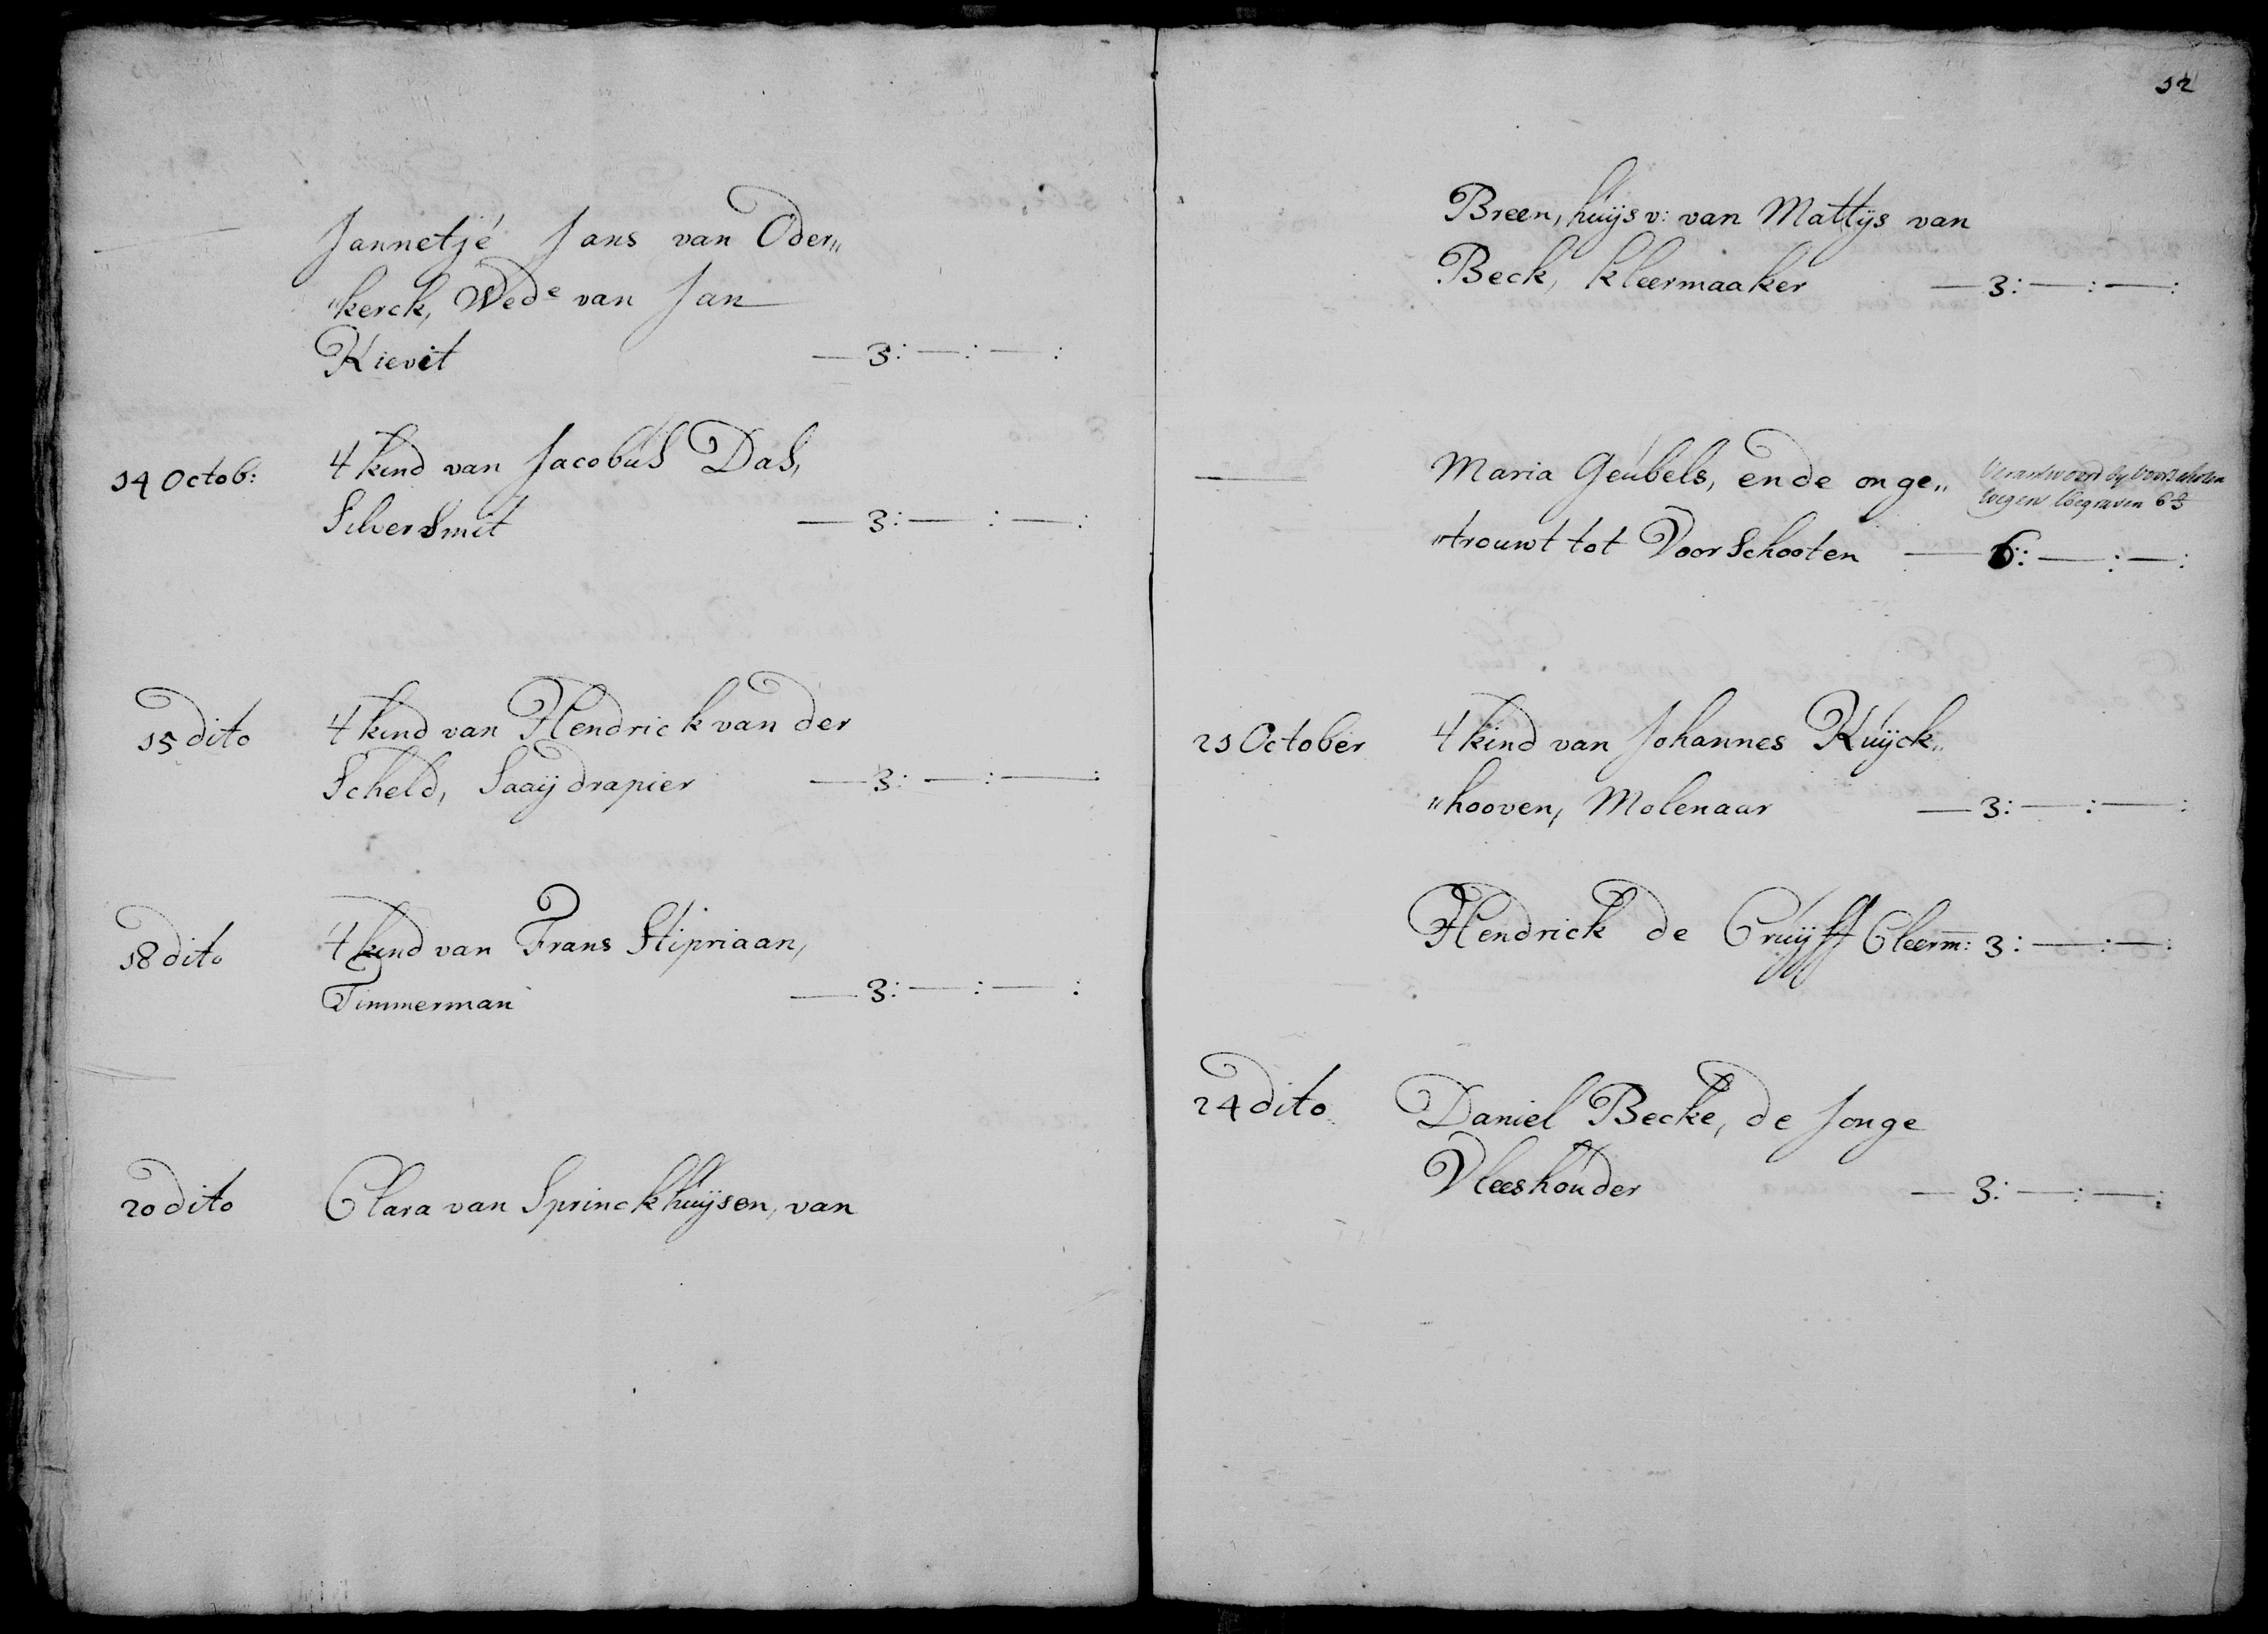 Jannetje Jans van Oder„
„kerck, Wed<sup>e</sup> van Jan
Kievit —3:—:—:
14 Octob: 4 kind van Jacobus Das,
Silversmit —3:—:—:
15 dito 4 kind van Hendrick van der
Scheld, Saaijdrapier —3:—:—:
18 dito 4 kind van Frans Stipriaan,
Timmerman —3:—:—:
20 dito Clara van Sprinckhuijsen, van
12
Breen, huijsv: van Mattijs van
Beck, kleermaaker —3:—:—:
— Maria Geúbels, ende onge„
Verantwoord by Voorschoten
wegen
„trouwt tot Voorschooten —6:—:—:
21 October 4 kind van Johannes Kuijck„
„hooven, Molenaar —3:—:—:
Hendrick de Cruijff Cleerm: 3:—:—:
24 dito Daniel Becke, de Jonge
Vleeshouder —3:—:—: